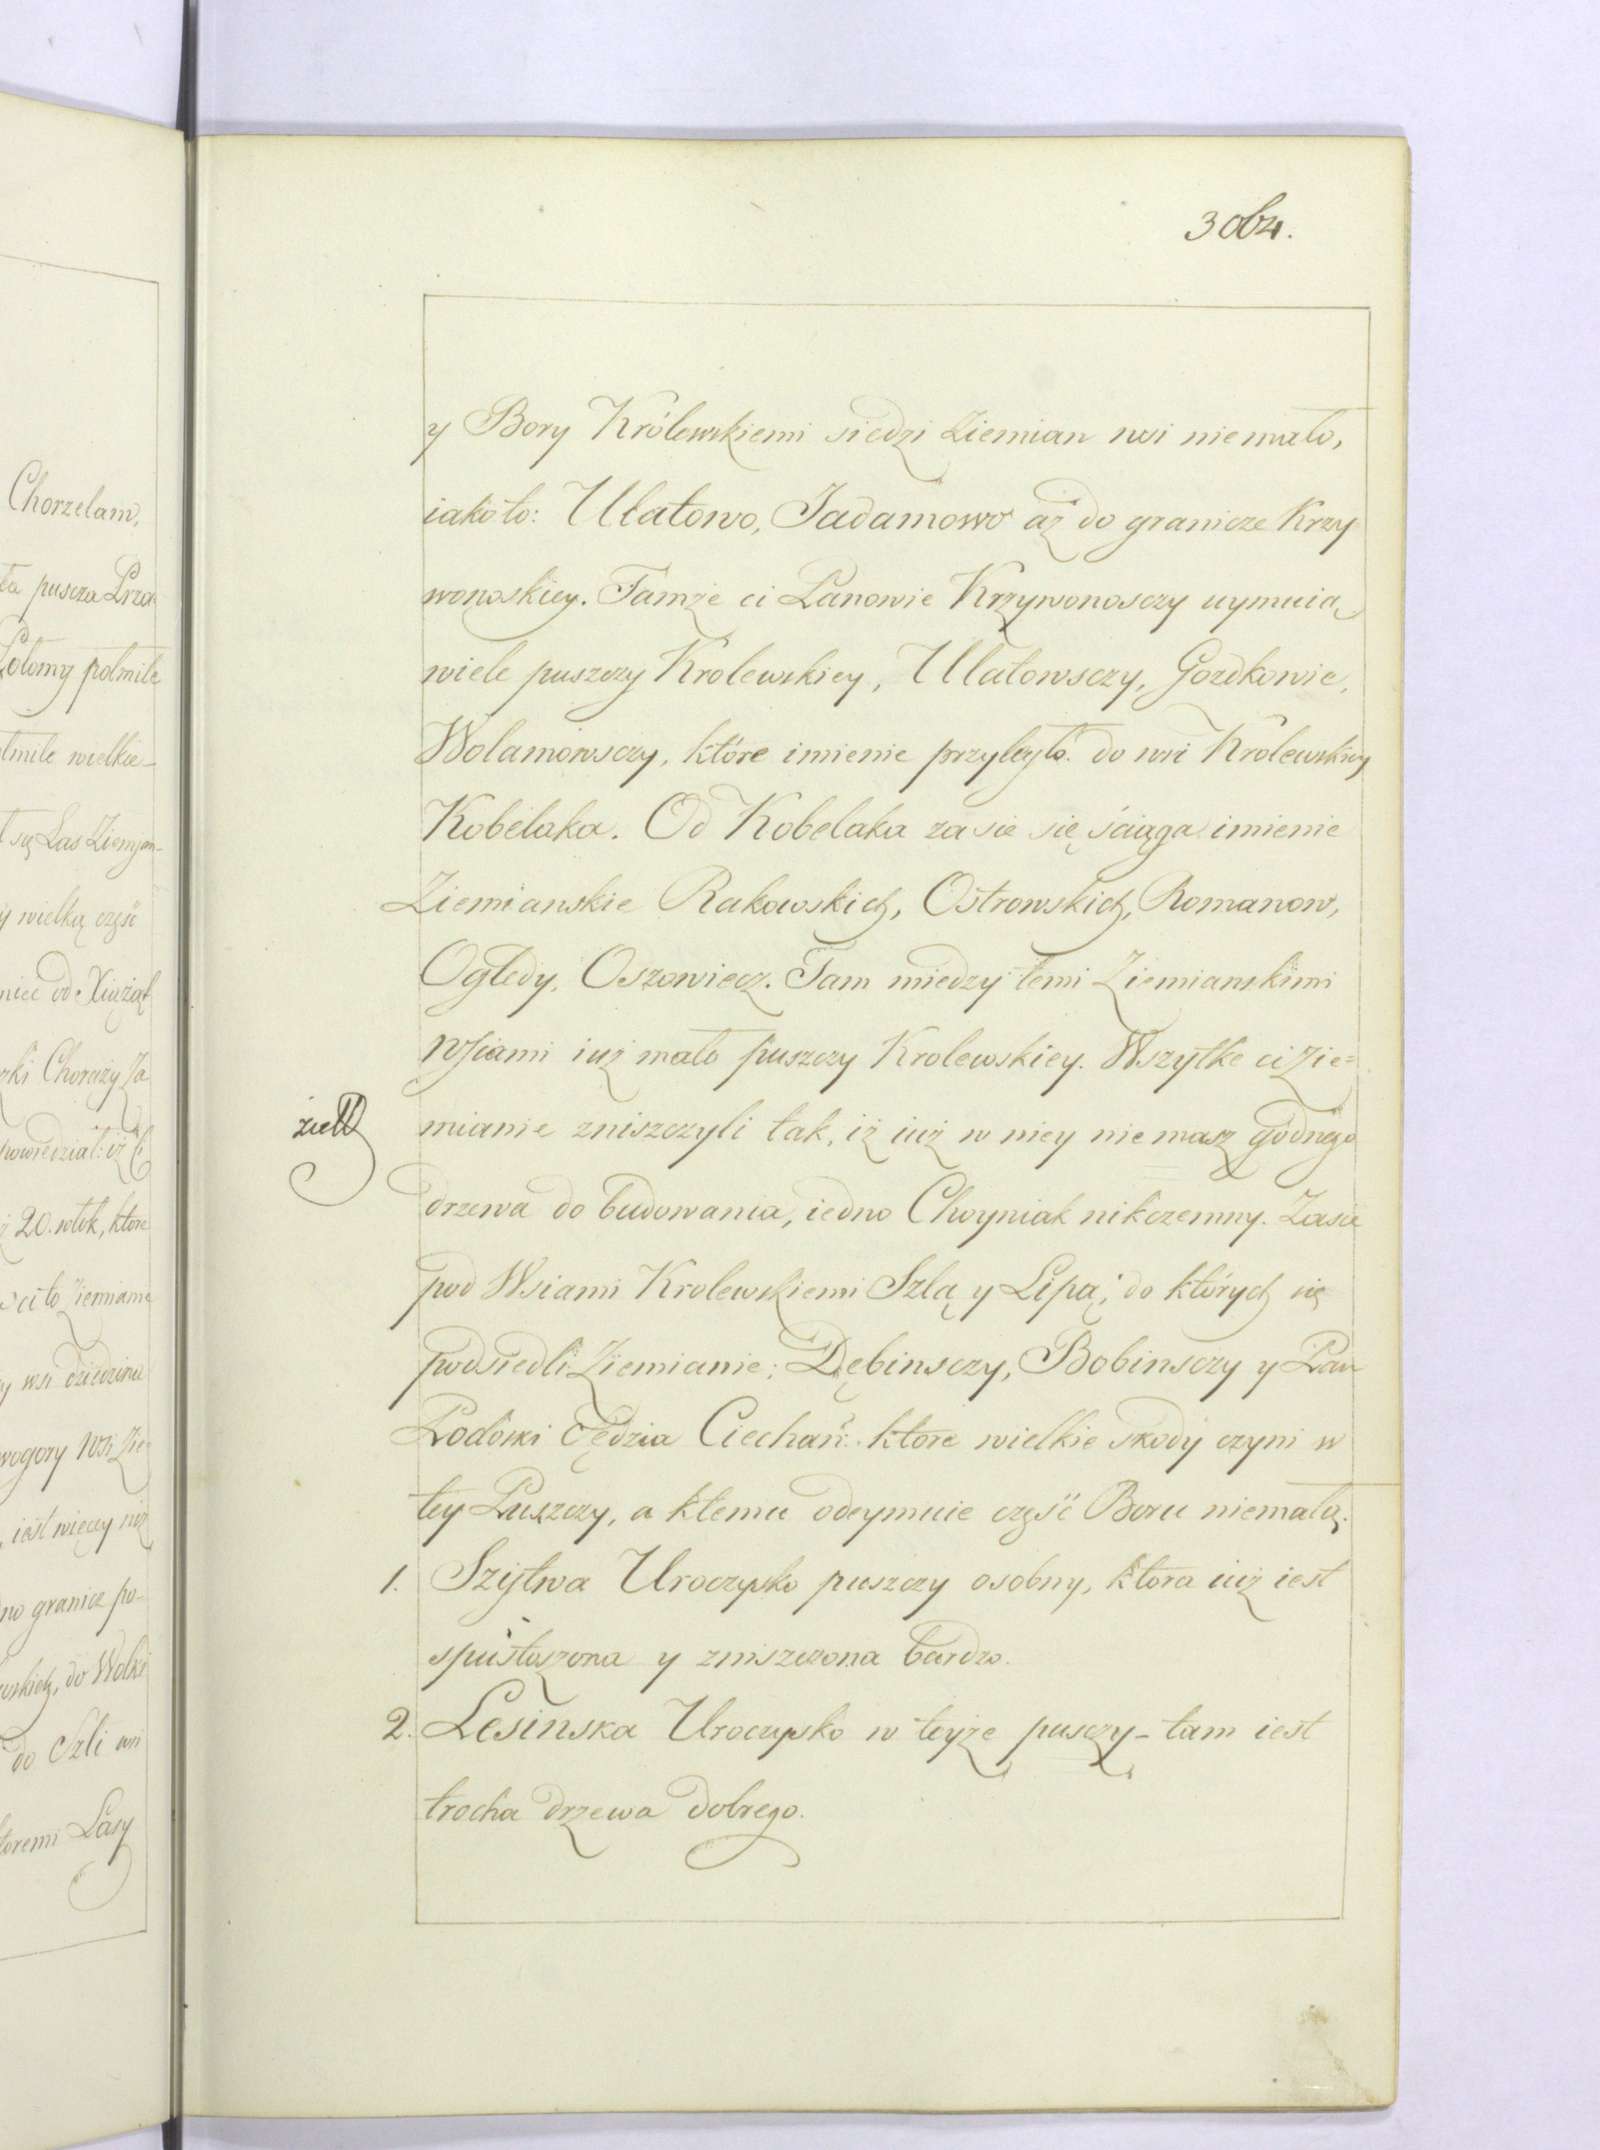 3 obu.
Chorzelam,
ta puscza Prza
polmile
łmile wielkie
Las Ziemjan-
y wielką część
od Xiążąt
Chorąży Za
powiedział: iż
20. włok, które
ci to Ziemianie
wsi dziedzinu
wogory Wsi Zie-
iest więcey niż
no granicz po-
do Wolki
do Szli wsi
Lasy
y Bory Królewskiemi siedzi Ziemian wsi niemało,
iako to: Ulatowo, Jadamowo aż do granicze Krzy-
wonoskiey. Tamże ci Panowie Krzywonosczy uymuią
wiele puszczy Krolewskiey, Ulatowsczy, Gozdkowie,
Wolamowsczy, które imienie przyległo do wsi Królewskiey
Kobelaka. Od Kobelaka zasie się ściąga imienie
Ziemianskie Rakowskich, Ostrowskich, Romanow,
Oględy, Oszowiecz. Tam miedzy temi Ziemianskimi
Wsiami iuż mało puszczy Krolewskiey. Wszytke ci Zie=
mianie zniszczyli tak, iż iuż w niey nie masz godnego
drzewa do budowania, iedno Choyniak nikczemny. Zasie
pod Wsiami Krolewskiemi Szlą y Lipą; do których się
podsiedli Ziemianie; Dębinsczy, Bobinsczy y Pan
Podoski Sędzia Ciechań: ktore wielkie skody czyni w
tey Puszczy, a ktemu odeymuie część Boru niemałą.
1. Szijtwa Uroczysko puszczy osobny, ktora iuż iest
spustoszona y zniszczona bardzo.
2. Lesinska Uroczysko w teyże pusczy - tam iest
trocha drzewa dobrego.